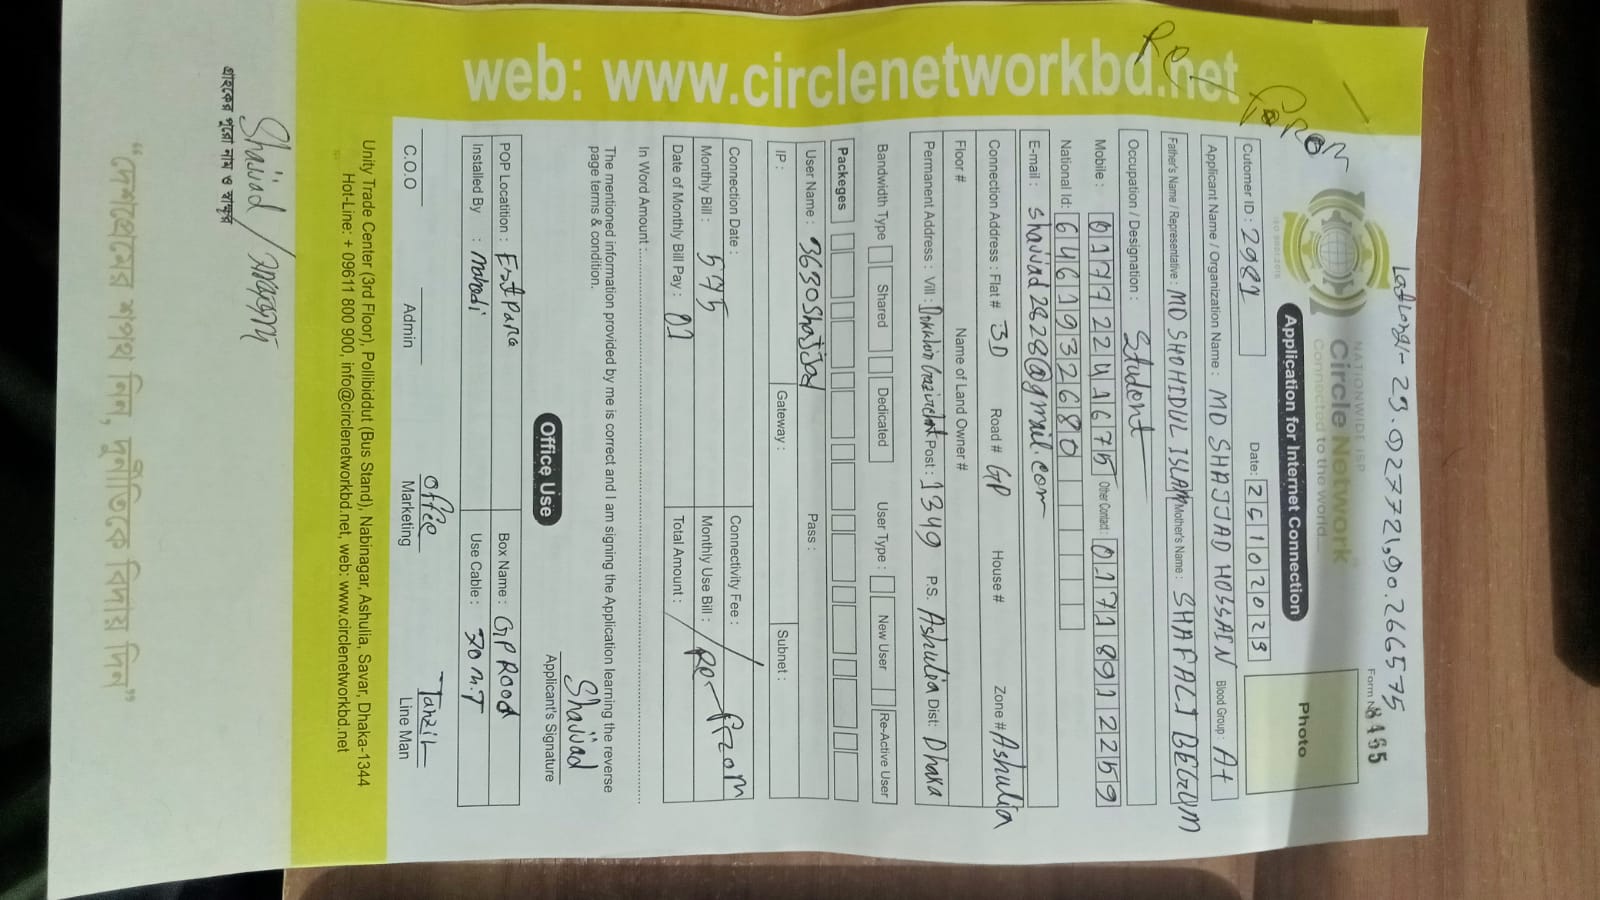 LatLong:- 23.927721,90.266575
Re/From
NATIONWIDE ISP
Circle Network
Connected to the world....
ISO 9001:2015
Form No 8465
Application for Internet Connection
Photo
Cutomer ID : 2981 Date: 25102023
Applicant Name / Organization Name : MD SHAJJAD HOSSAIN Blood Group : A+
Father's Name / Representative : MD SHOHIDUL ISLAM Mother's Name : SHAFALI BEGUM
Occupation / Designation : Student
Mobile : 01772241675 Other Contact : 01718912259
National Id: 6461932680
E-mail : shajjad2828@gmail.com
Connection Address : Flat # 3D Road # GP House # Zone # Ashulia
Floor # Name of Land Owner #
Permanent Address : Vill : Post : 1349 P.S. Ashulia Dist: Dhaka
Bandwidth Type Shared Dedicated User Type : New User Re-Active User
Packeges
User Name : 3630Shajjad Pass :
IP : Gateway : Subnet :
Connection Date : Connectivity Fee :
Monthly Bill : 575 Monthly Use Bill : Re-From
Date of Monthly Bill Pay : 01 Total Amount :
In Word Amount :
The mentioned information provided by me is correct and I am signing the Application learning the reverse
page terms & condition.
Shajjad
Applicant's Signature
Office Use
POP Locatition : Box Name : GP Rood
Installed By : Mahedi Use Cable : 70 M.T
office Tanzil
C.O.O Admin Marketing Line Man
Unity Trade Center (3rd Floor), Pollibiddut (Bus Stand), Nabinagar, Ashulia, Savar, Dhaka-1344
Hot-Line: + 09611 800 900, info@circlenetworkbd.net, web: www.circlenetworkbd.net
web: www.circlenetworkbd.net
Shajjad / সাজ্জাদ
গ্রাহকের পুরো নাম ও স্বাক্ষর
“দেশপ্রেমের শপথ নিন, দুর্নীতিকে বিদায় দিন”